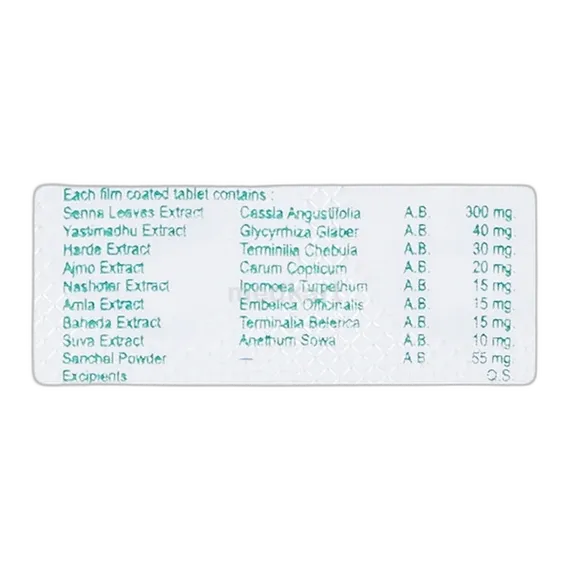 Each film coated tablet contains :
Senna Leaves Extract Cassia Angustifolia A.B. 300 mg.
Yastimadhu Extract Glycyrrhiza Glaber A.B. 40 mg.
Harde Extract Terminilia Chebula A.B. 30 mg.
Ajmo Extract Carum Copticum A.B. 20 mg.
Nashoter Extract Ipomoea Turpethum A.B. 15 mg.
Amla Extract Embelica Officinalis A.B. 15 mg.
Baheda Extract Terminalia Belerica A.B. 15 mg.
Suva Extract Anethum Sowa A.B. 10 mg.
Sanchal Powder — A.B. 55 mg.
Excipients Q.S.